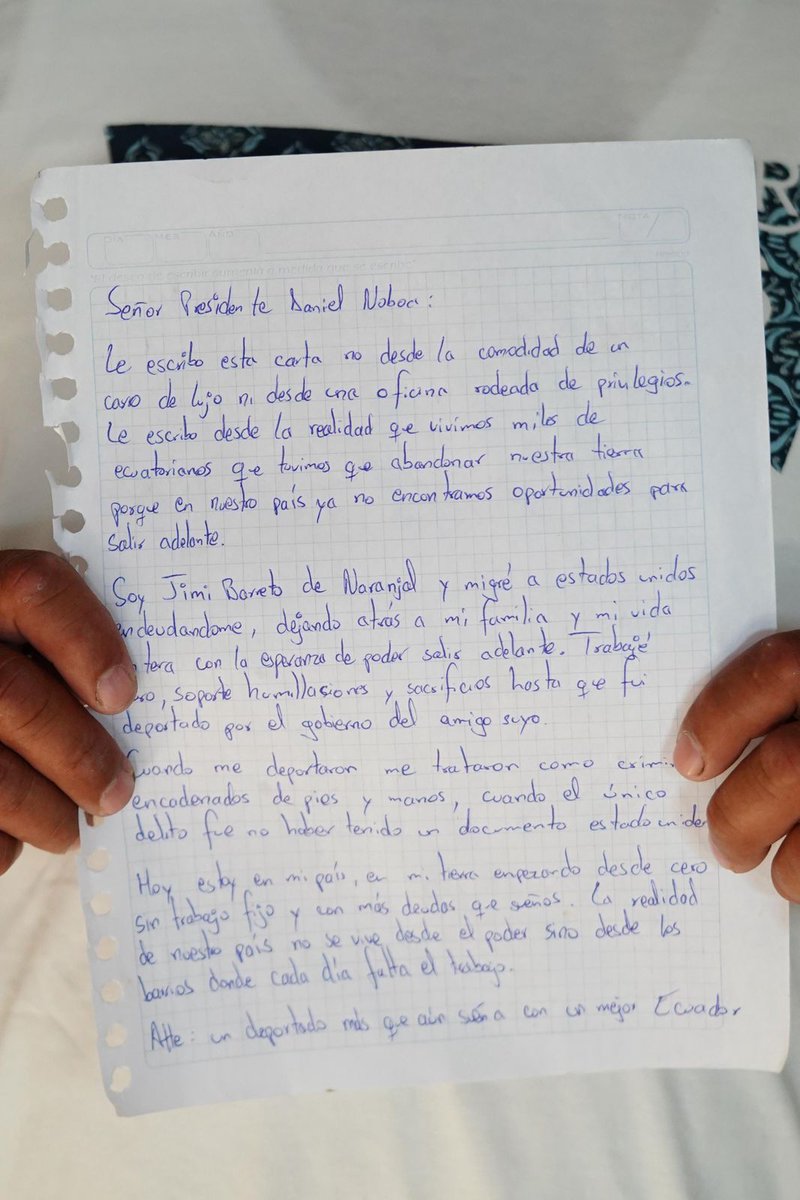 DIA MES AÑO
Señor Presidente Daniel Noboa:
Le escribo esta carta no desde la comodidad de un
caro de lujo ni desde una oficina rodeada de privilegios.
Le escribo desde la realidad que vivimos miles de
ecuatorianos que tuvimos que abandonar nuestra tierra
porque en nuestro país ya no encontramos oportunidades para
salir adelante.
Soy Jimi Barreto de Naranjal y migré a estados unidos
endeudandome, dejando atrás a mi familia y mi vida
tera con la esperanza de poder salir adelante. Trabajé
ro, soporte humillaciones y sacrificios hasta que fui
deportado por el gobierno del amigo suyo.
Cuando me deportaron me trataron como crimi
encadenados de pies y manos, cuando el único
delito fue no haber tenido un documento estadounide
Hoy estoy en mi país, en mi tierra empezando desde cero
sin trabajo fijo y con más deudas que sueños. La realidad
de nuestro país no se vive desde el poder sino desde los
barrios donde cada día falta el trabajo.
Atte: un deportado más que aún sueña con un mejor Ecuador
R